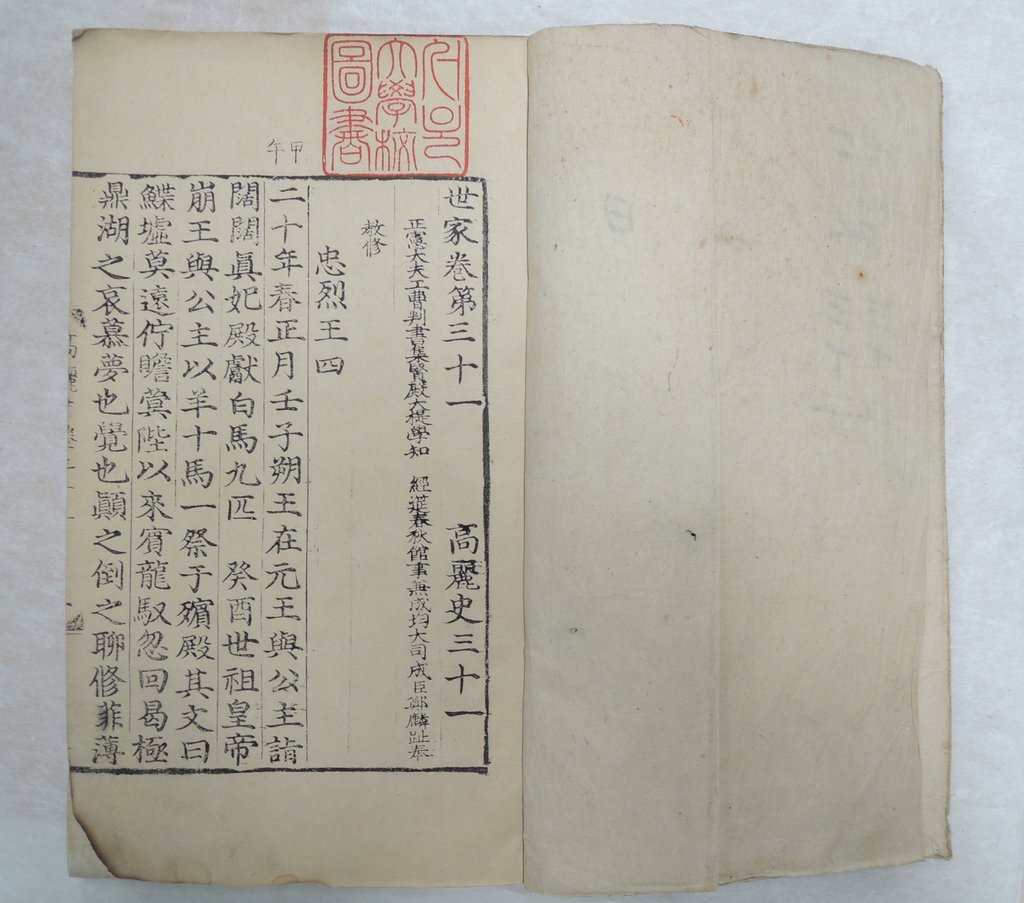 大學校
圖書
世家卷第三十一 高麗史三十一
正憲大夫工曹判書集賢殿大提學知 經筵春秋館事兼成均大司成臣鄭麟趾奉
敎修
忠烈王四
甲午
二十年春正月壬子朔王在元王與公主詣
闊闊眞妃殿獻白馬九匹 癸酉世祖皇帝
崩王與公主以羊十馬一祭于殯殿其文曰
鰈墟莫遠佇瞻蓂陛以來賓龍馭忽回曷極
鼎湖之哀慕夢也覺也顚之倒之聊修菲薄
高麗